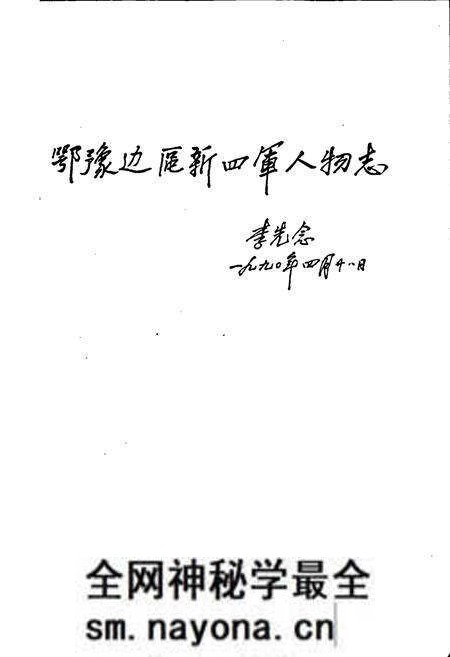 鄂豫边区新四軍人物志
李先念
一九九〇年四月十八日
全网神秘学最全
sm.nayona.cn